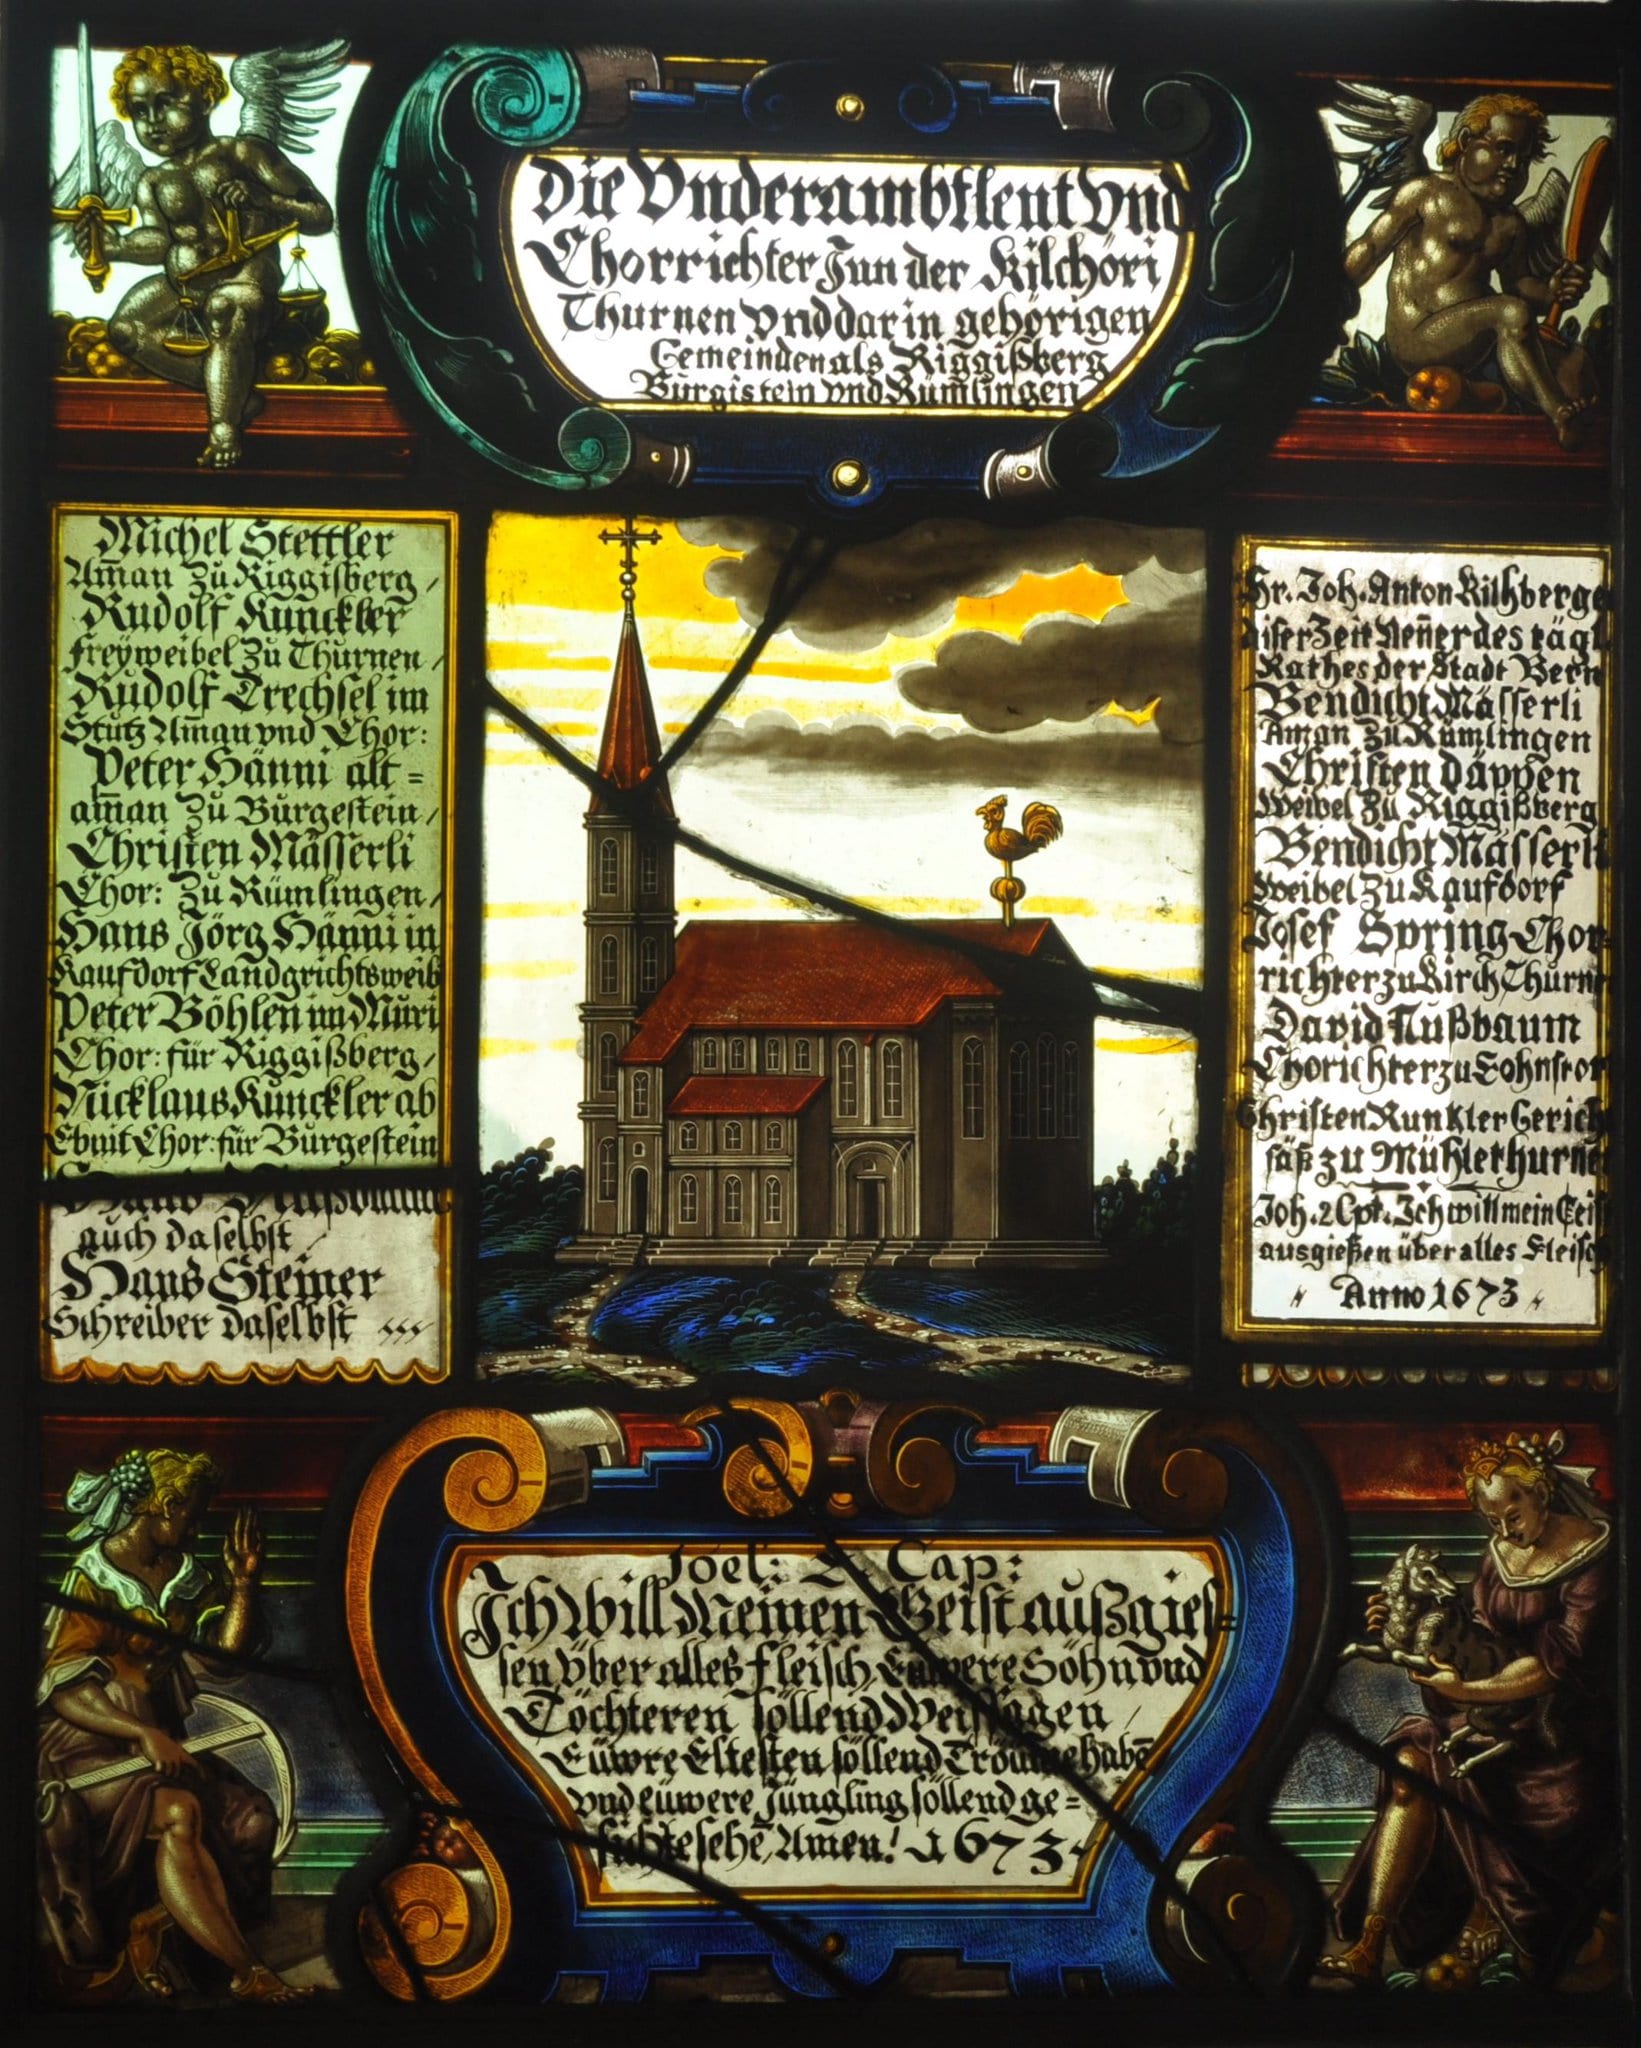 Die Vnderambtlent vnd
Chorrichter Jnn der Kilchöri
Thurnen vnd darin gehörigen
Gemeinden als Riggißberg
Burgistein vnd Rümlingen
Michel Stettler
Am̃an Zu Riggisberg /
Rudolf Kunckler
freyweibel Zu Thurnen /
Rudolf Trechsel im
Stutz Am̃an vnd Chor:
Peter Hänni alt=
am̃an Zu Burgestein /
Christen Mässerli
Chor: Zu Rümlingen /
Hans Jörg Hänni in
Kaufdorf Landgrichtsweib
Peter Böhlen im Muri
Chor: für Riggißberg /
Nicklaus Kunckler ab
Ebnit Chor: für Burgestein
auch daselbst /
Hans Steiner
Schreiber daselbst
Hr. Joh. Anton Kilchberge
diser Zeit Ven̄er des tägl
Rathes der Stadt Bern
Bendicht Mässerli
Am̄an zu Rümlingen
Christen däppen
Weibel Zu Riggißberg
Bendicht Mässerli
Weibel Zu Kaufdorf
Josef Spring Chor=
richter zu Kirch Thurne
David Nußbaum
Chorichter zu Lohnstor
Christen Runkler Gerich
säß zu Mühlethurne
Joh. 2 Cpt. Ich will mein Geis
ausgießen über alles Fleisch
Anno 1673
Joel: 2 Cap:
Ich Will Meinen Geist außgies=
sen vber alles fleisch, Euwere Söhn vnd
Töchteren söllend Weissagen /
Eüwre Eltesten söllend Tröume haben̄
vnd eüwere Jüngling söllend ge=
sichte sehen̄, Amen! 1673.